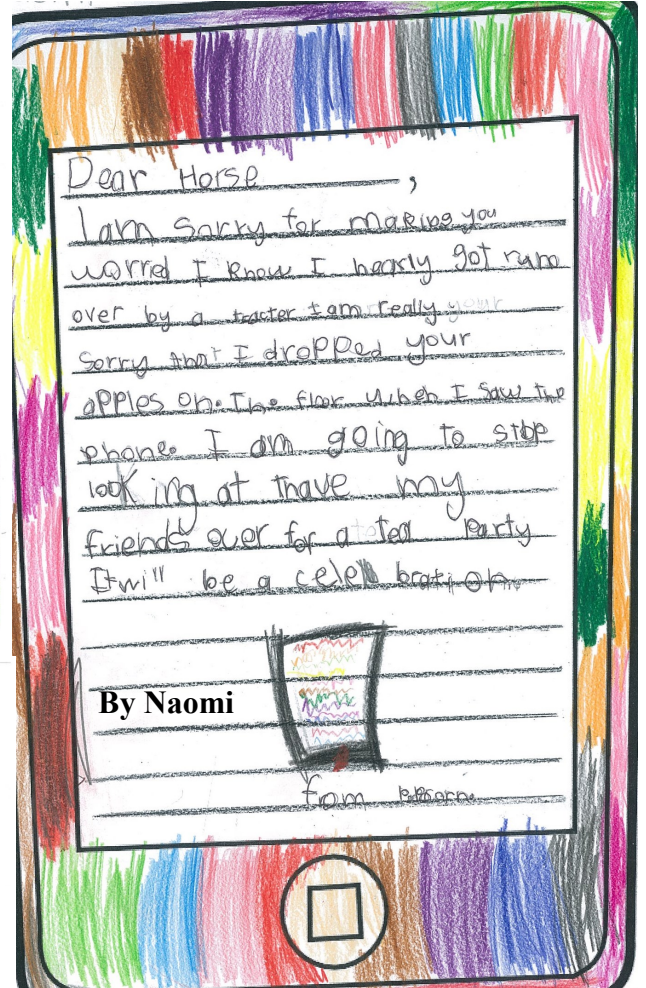 Dear Horse ,
I am Sorry for making you
worred I know I nearly got run
over by a tracter I am really your
sorry that I dropped your
apples on. The floor when I saw the
phone. I am going to stop
looking at have my
friends over for a tea Party
It will be a celebration.
By Naomi
from